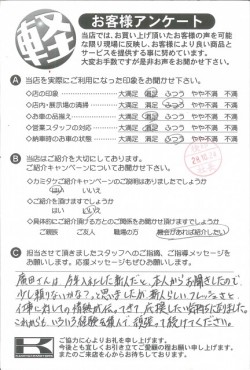 軽
お客様アンケート
当店では、お買い上げ頂いたお客様の声を可能
な限り現場に反映し、お客様により良い商品と
サービスを提供する事に努めています。
大変お手数ですが是非お声をお聞かせ下さい。
A 当店を実際にご利用になった印象をお聞かせ下さい。
◇店の印象 大満足 満足 ふつう やや不満 不満
◇店内・展示場の清掃 大満足 満足 ふつう やや不満 不満
◇お車の品揃え 大満足 満足 ふつう やや不満 不満
◇営業スタッフの対応 大満足 満足 ふつう やや不満 不満
◇納車時のお車の状態 大満足 満足 ふつう やや不満 不満
B 当店はご紹介を大切にしております。
ご紹介キャンペーンについてお聞かせ下さい。
◇カミタケご紹介キャンペーンの説明はありましたでしょうか
はい いいえ
◇ご紹介を頂けますでしょうか
はい いいえ
◇具体的にご紹介頂ける方とのご関係をお聞かせ頂けますでしょうか
ご親族 ご友人 職場の方 機会があれば紹介したい
C 担当させて頂きましたスタッフへのご指摘、ご指導メッセージを
お願いします。応援メッセージもぜひお願いします。
今年入社した新人だと、友人からお聞きしたので
少し頼りないかな?と思いましたが、新人らしいフレッシュさと
仕事に対しての情熱が伝わってきて応援したい気持ちになりました。
これからもいろいろ経験を積んで頑張って続けてください。
ご協力に心よりお礼を申し上げます。
今後とも宜しくお引き立てご愛顧の程お願い申し上げます。
またのご来店を心からお待ちしております。